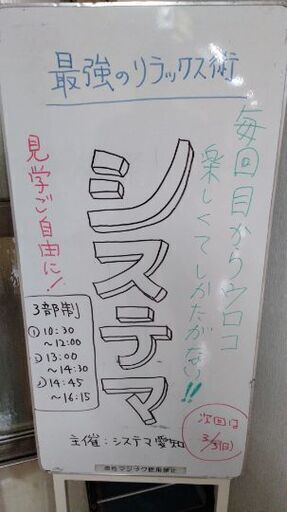 最強のリラックス術
毎回目からウロコ
楽しくてしかたがない!!
システマ
見学ご自由に!
3部制
①10:30
〜12:00
②13:00
〜14:30
③14:45
〜16:15
主催:システマ愛知
次回は
3/3(日)
油性マジック使用禁止